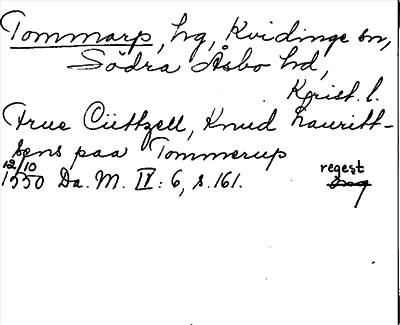 Tommarp, hg, Kvidinge sn,
Södra Åsbo hd,
Krist. l.
Frue Cittzell, Knud Lauritt-
sens paa Tommerup
12/10
1550 Da. M. IV: 6, s. 161.
regest